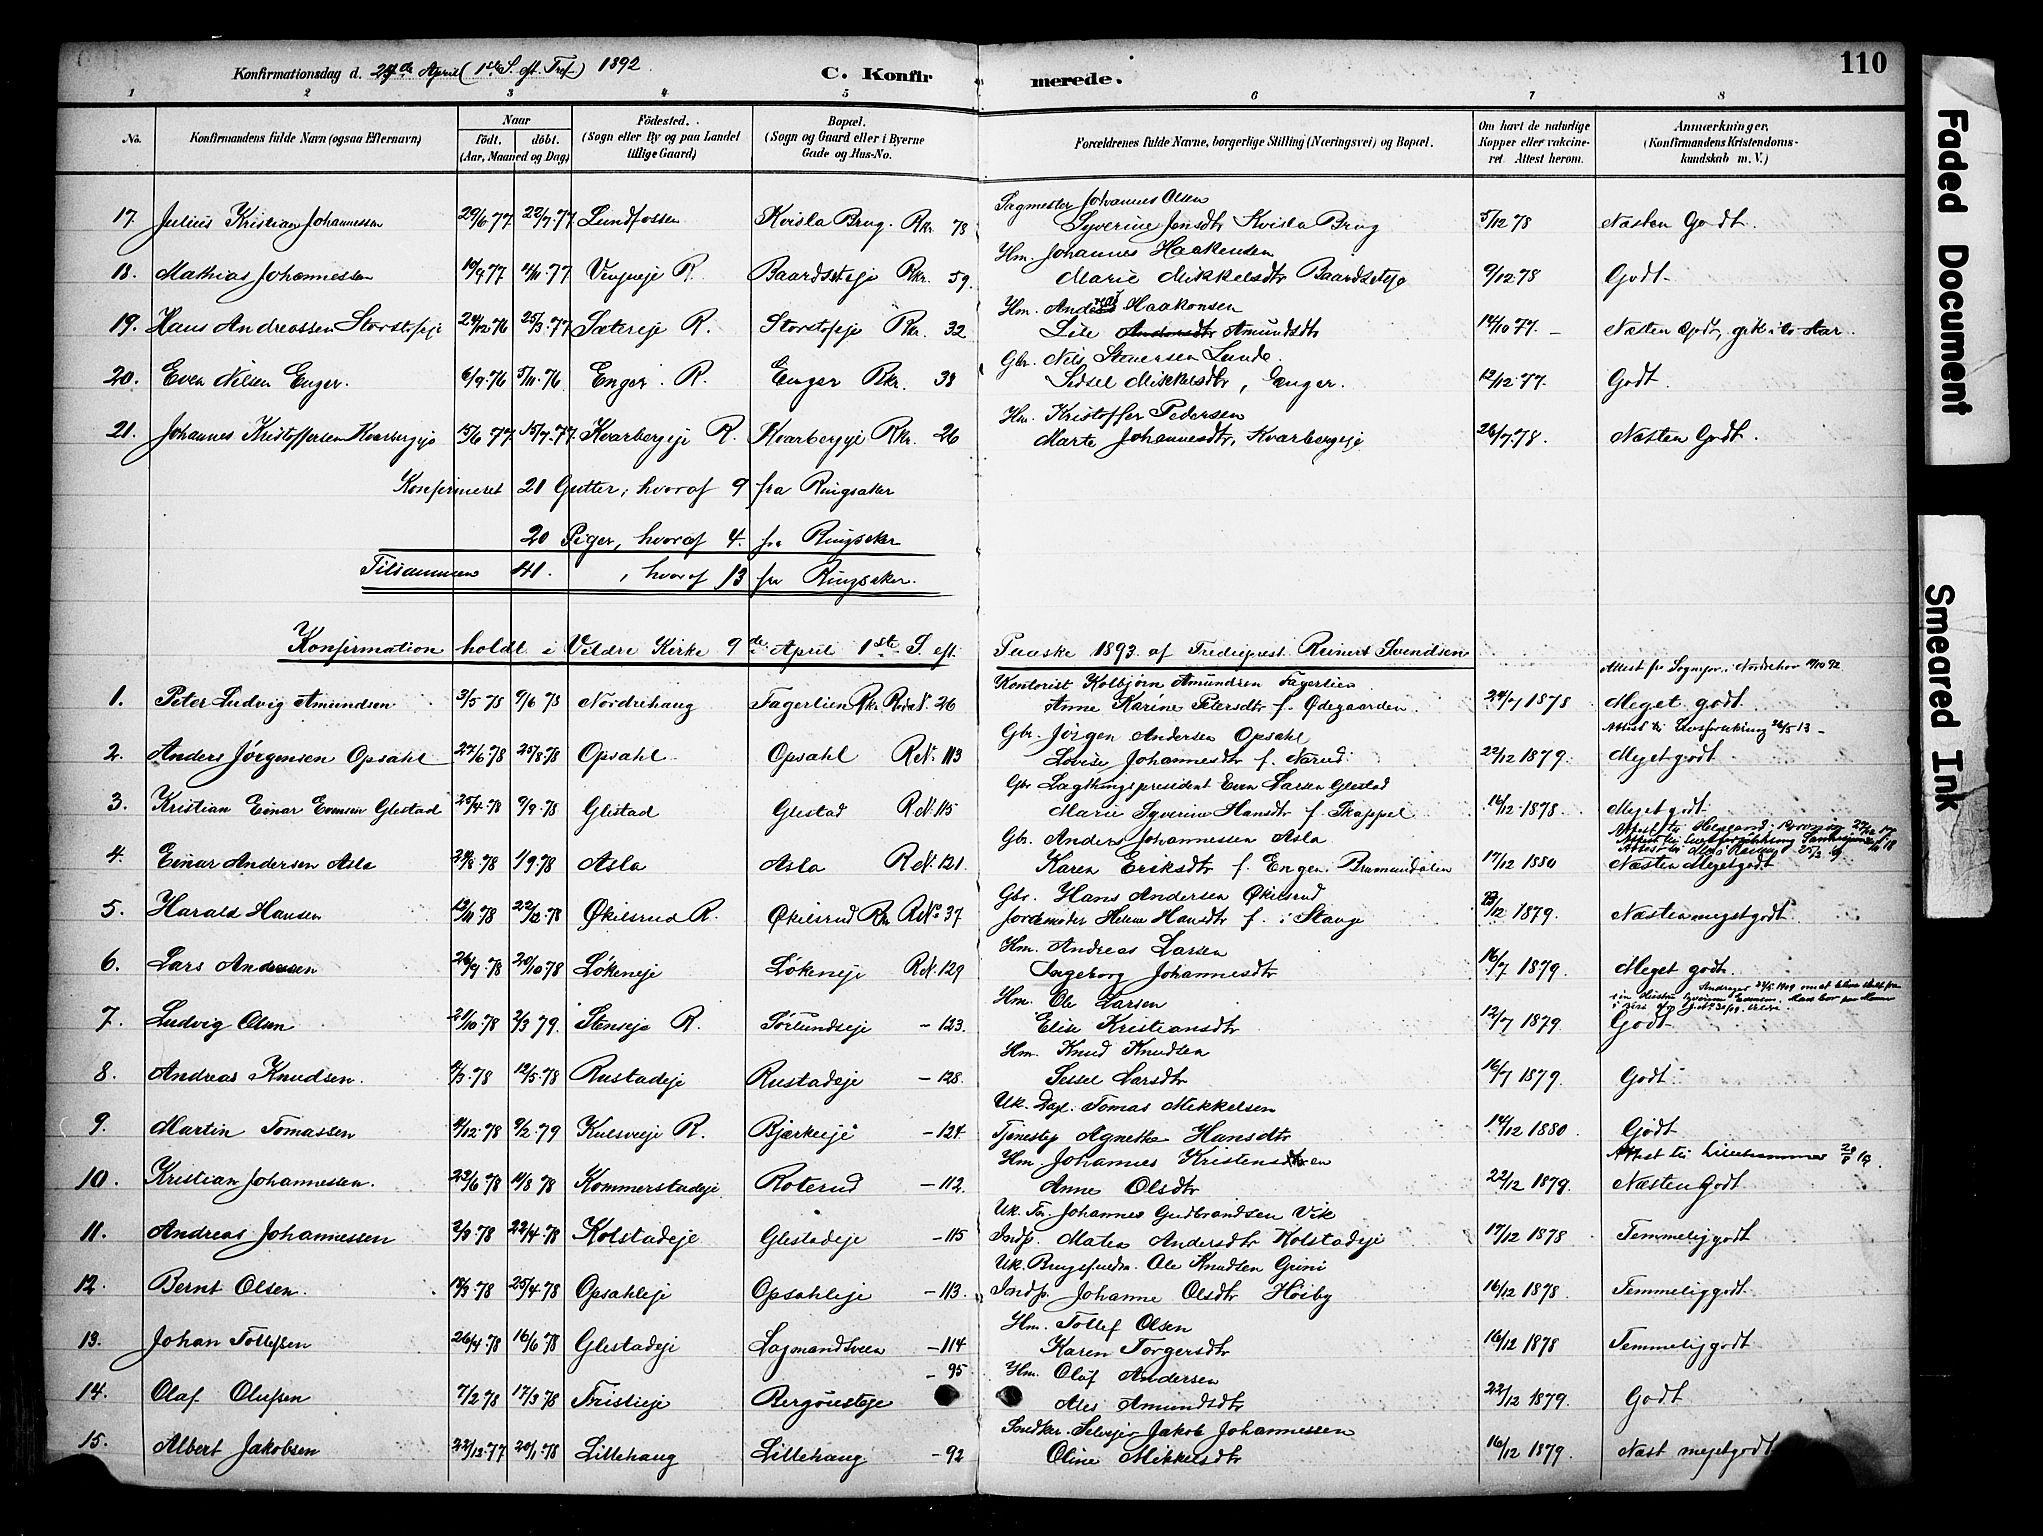 Konfirmationsdag d. 24de April (1ste S. eft. Tref.) 1892.
C. Konfirmerede.
110
1 2 3 4 5 6 7 8
No.
Konfirmandens fulde Navn (ogsaa Efternavn)
Naar
født. døbt.
(Aar, Maaned og Dag)
Födested.
(Sogn eller By og paa Landet tillige Gaard)
Bopæl.
(Sogn og Gaard eller i Byerne Gade og Hus-No.
Forældrenes fulde Navne, borgerlige Stilling (Næringsvei) og Bopæl.
Om havt de naturlige Kopper eller vakcineret. Attest herom.
Anmærkninger.
(Konfirmandens Kristendomskundskab m. V.)
Sagmester Johannes Olsen
17. Julius Kristian Johannessen 29/6 77 22/7 77 Lundfossen Kvisla Brug. Rkr. 78 Syverine Jonsdtr Kvisla Brug 5/12 78 Næsten Godt.
Hm. Johannes Haakensen
18. Mathias Johannessen 19/9 77 11/11 77 Vingneje R. Baardsetseje Rkr. 59. Marie Mikkelsdtr Baardseteje 9/12 78 Godt
Hm. Andreas Haakonsen
19. Hans Andreassen Storstofeje 24/12 76 25/3 77 Sætereje R. Storstofeje Rkr. 32 Lise Andersdtr Amundsdtr 14/10 77. Næsten Godt, gik i to Aar.
Gbr. Nils Stenersen Lunde.
20. Even Nilsen Enger. 6/9 76 5/11 76 Enger R. Enger Rkr. 38 Sidsel Mikkelsdtr, Enger. 12/12 77. Godt.
Hm. Kristoffer Pedersen
21. Johannes Kristoffersen Kvarbergeje 15/6 77 15/7 77 Kvarbergeje R. Kvarbergeje Rkr. 26 Marte Johannesdtr, Kvarbergeje 26/7 78. Næsten Godt.
Konfirmeret 21 Gutter, hvoraf 9 fra Ringsaker
20 Piger, hvoraf 4 fra Ringsaker
Tilsammen 41. , hvoraf 13 fra Ringsaker.
Konfirmation holdt i Veldre Kirke 9de April 1ste S. eft. Paaske 1893 af Tredieprest Reinert Svendsen
Attest fr Sognepr. i Nordrehov 19/10 92
Kontorist Kolbjørn Amundsen Fagerlien
1. Peter Ludvig Amundsen 3/5 78 9/6 78 Nordrehaug Fagerlien Rkr. Rode N. 26 Anne Karine Petersdtr f. Ødegaarden 24/7 1878 Meget godt.
Gbr. Jørgen Andersen Opsahl
2. Anders Jørgensen Opsahl 27/6 78 25/8 78 Opsahl Opsahl R.N. 113 Lovise Johannesdtr f. Narud 22/12 1879. Meget godt
Gbr Lagthingspresident Even Larsen Glestad
3. Kristian Einar Evensen Glestad 25/4 78 9/9 78 Glestad Glestad R.N. 115 Marie Syverine Hansdtr f. Skappel 16/12 1878. Meget godt.
Gbr. Anders Johannessen Asla
4. Einar Andersen Asla 1/9 78 Asla Asla R.N. 121 Karen Eriksdtr f. Engen. Brumundalen 17/12 1880 Næsten Meget godt
Gbr. Hans Andersen Økilsrud
5. Harald Hansen 12/11 78 22/12 78 Økilsrud R. Økilsrud Rkr R.No. 37 Jordemoder Helene Hansdtr f. i Stange /12 1879. Næsten meget godt.
Hm. Andreas Larsen
6. Lars Andersen 26/9 78 20/10 78 Løkeneje Løkeneje R.N. 129 Ingeborg Johannesdtr 16/7 1879. Meget godt.
Hm. Ole Larsen
7. Ludvig Olsen 21/10 78 2/3 79. Stenseje R. Sørlundseje - 123. Elise Kristiansdtr 12/7 1879. Godt
Hm. Knud Knudsen
8. Andreas Knudsen. 12/5 78 Rustadeje Rustadeje - 128. Sessel Larsdtr 16/7 1879. Godt
Uk. Dagl. Tomas Mikkelsen
9. Martin Tomassen 9/2 79 Kulsveeje R. Bjerkeeje - 124. Tjenestep Agnethe Hansdtr 14/12 1880. Godt
Attest til Lillehammer
Hm Johannes Kristensen
10. Kristian Johannessen. 23/6 78 11/8 78 Kommerstadeje Roterud - 112. Anne Olsdtr 22/12 1879. Næsten Godt
Uk. Tø. Johannes Gudbrandsen Vik
11. Andreas Johannessen 22/4 78 Kolstadeje Glestadeje - 115 Indp. Matea Andersdtr Kolstadeje 17/12 1878 Temmelig godt
Uk. Ole Knudsen Grini
12. Bernt Olsen. 25/4 78 Opsahleje Opsahleje - 113. Indp. Johanne Olsdtr Høiby 16/12 1878. Temmelig godt
Hm. Tollef Olsen
13. Johan Tollefsen 26/4 78 16/6 78 Glestadeje Lagmandsveen - 114 Karen Torgersdtr 16/12 1878 Temmelig godt
- 95 Hm. Oluf Andersen
14. Olaf Olufsen 7/2 78 17/3 78 Fristieje Bergsusteje Ales Amundsdtr 22/12 1879. Godt
Snedker Selvejer Jakob Johannessen
15. Albert Jakobsen 22/12 77 20/1 78 Lillehaug Lillehaug - 92 Oline Mikkelsdtr 16/12 1879. Næst meget godt
Faded Document
Smeared Ink